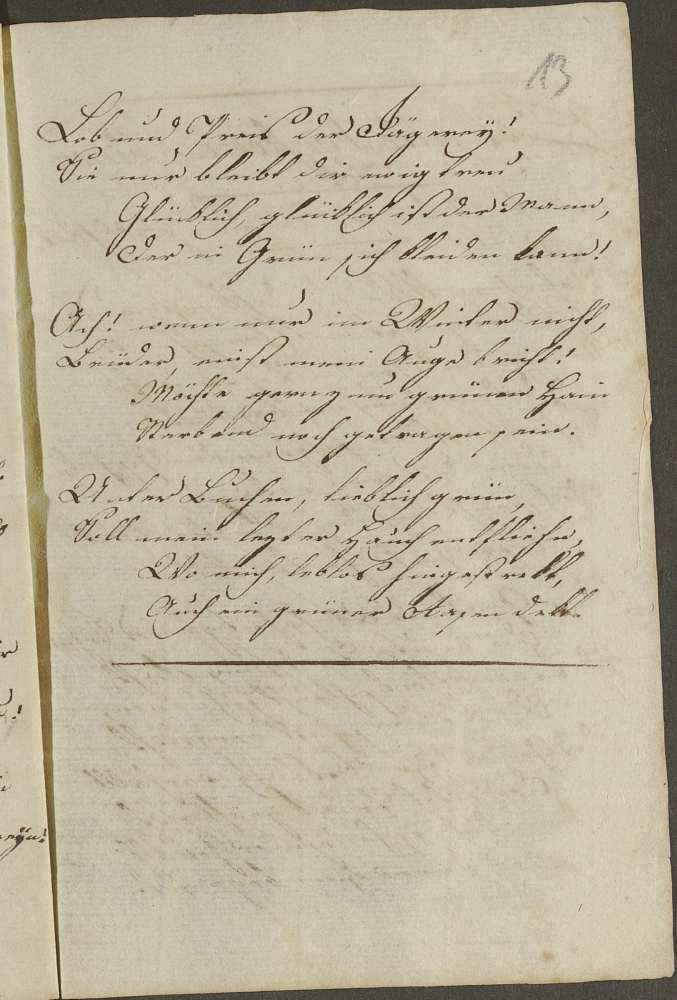 13
Lob und Preis der Jägerey!
Sie nur bleibt dir ewig treu
Glücklich, glücklich ist der Mann,
Der in Grün sich kleiden kann!
Ach! wenn nur im Winter nicht,
Brüder, einst mein Auge bricht!
Möchte gern zum grünen Hain
Sterbend noch getragen sein.
Unter Buchen, lieblich grün,
Soll mein lezter Hauch entfliehn,
Wo mich, leblos hingestrekt,
Auch ein grüner Rasen dekt.